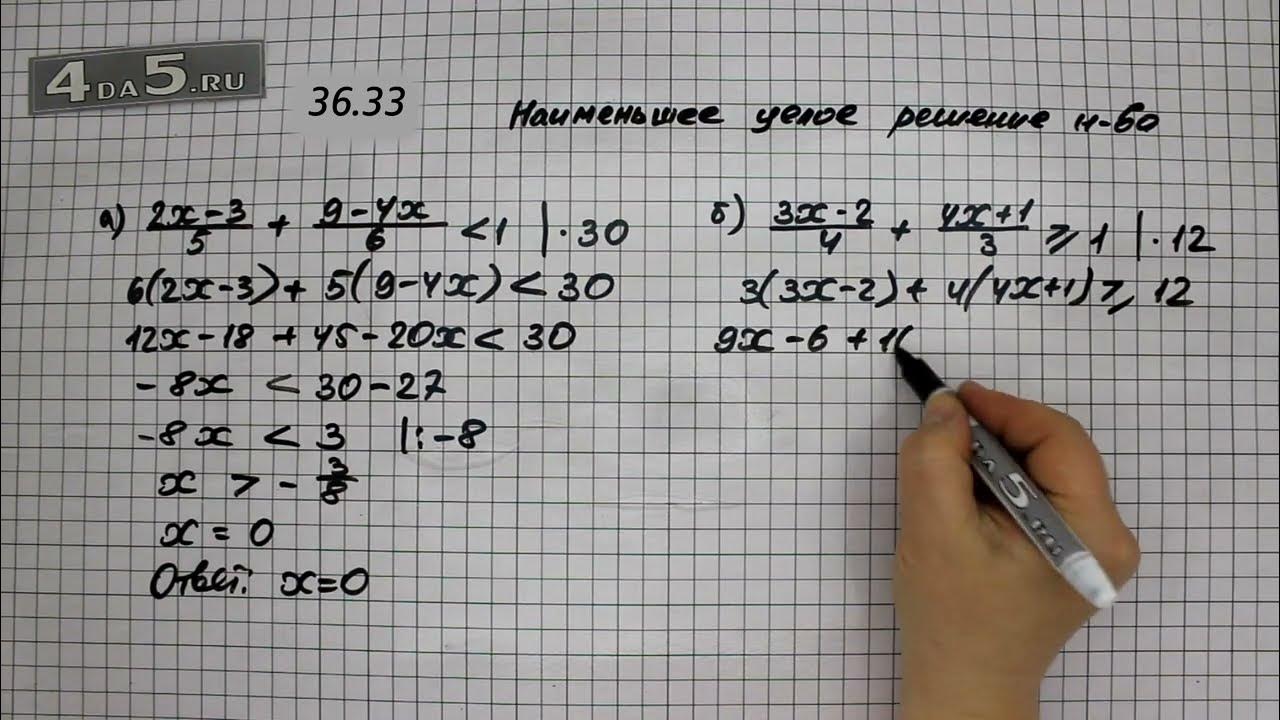 4DA5.RU
36.33
Наименьшее целое решение н-во
а) (2x-3)/5 + (9-4x)/6 < 1 | · 30
6(2x-3) + 5(9-4x) < 30
12x-18 + 45-20x < 30
-8x < 30-27
-8x < 3 |:-8
x > -3/8
x = 0
Ответ: x=0
б) (3x-2)/4 + (4x+1)/3 ⩾ 1 | · 12
3(3x-2) + 4(4x+1) ⩾ 12
9x-6 + 1